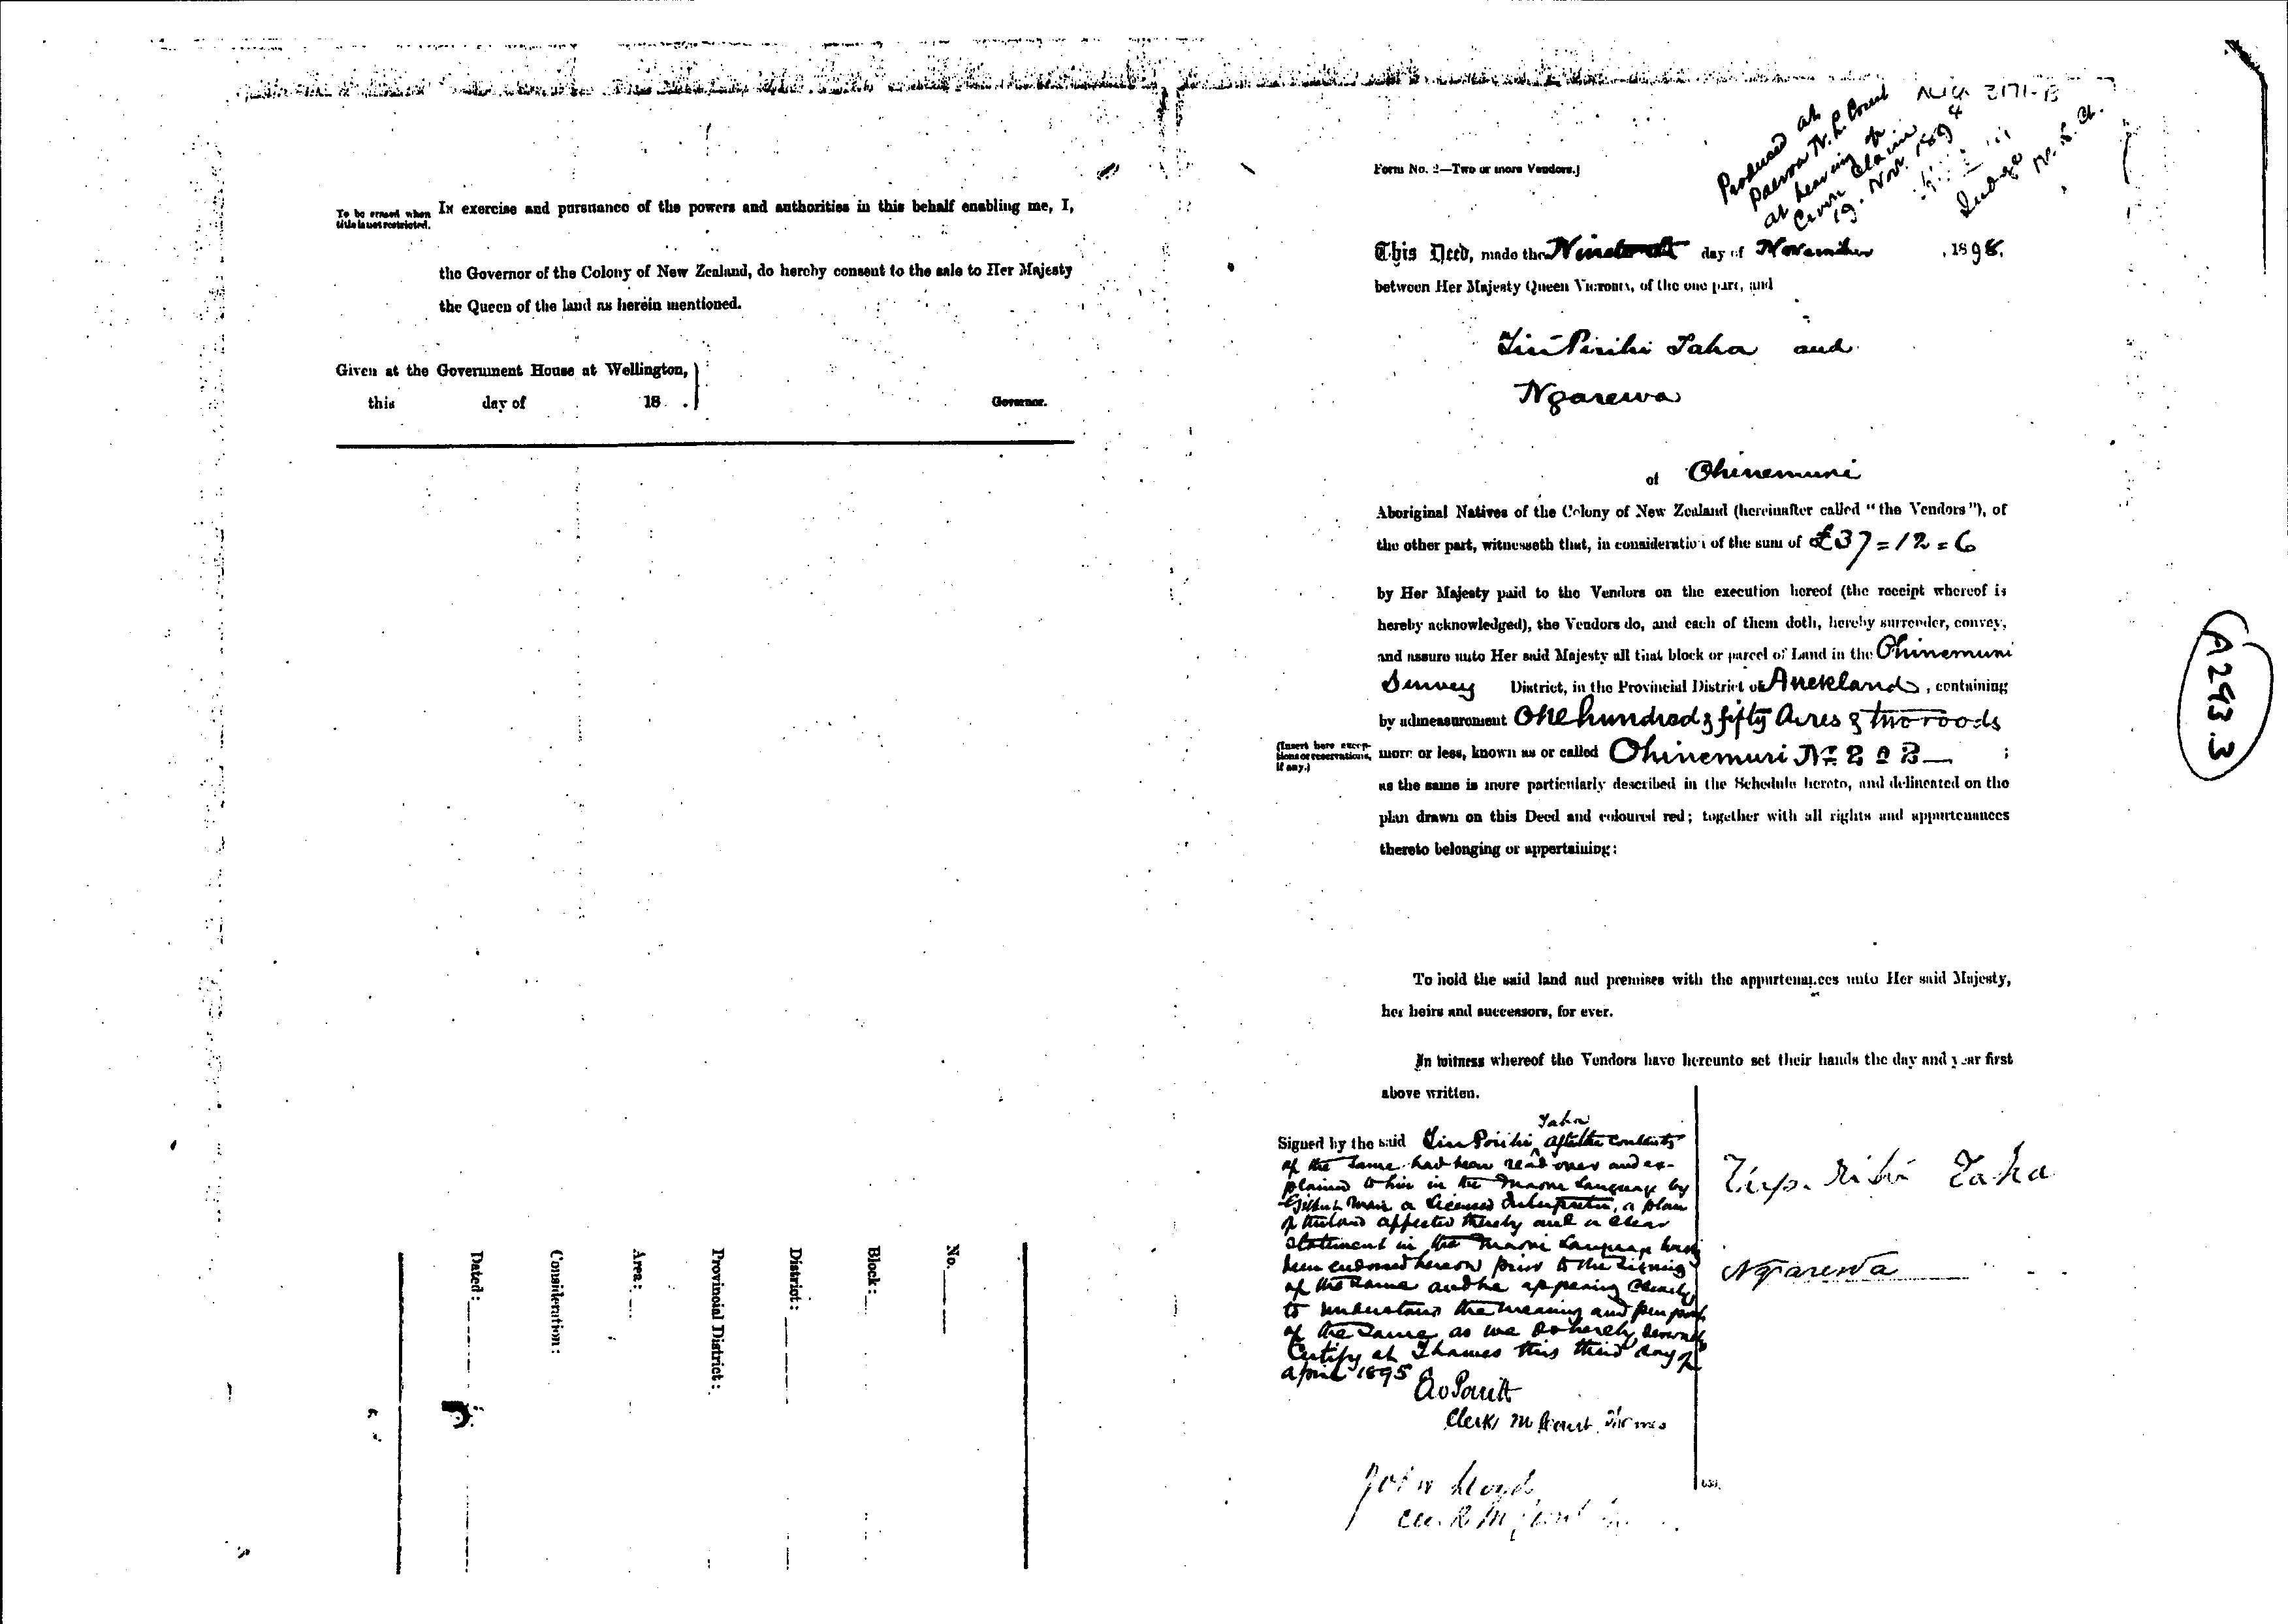 To be erased when
title is not restricted.
In exercise and pursuance of the powers and authorities in this behalf enabling me, I,
the Governor of the Colony of New Zealand, do hereby consent to the sale to Her Majesty
the Queen of the land as herein mentioned.
Given at the Government House at Wellington,
this day of 18 .
Governor.
Dated:
Consideration:
Area:
Provincial District:
District:
Block:
No.
2171-B
Produced at
Paeroa N. L. Court
at hearing of
Crown Claim
19. Nov. 1894
Judge N. L. Ct.
Form No. 2—Two or more Vendors.]
This Deed, made the day of November , 189
between Her Majesty Queen Victoria, of the one part, and
Pirihi Taha and
Ngarewa
of Ohinemuri
Aboriginal Natives of the Colony of New Zealand (hereinafter called "the Vendors"), of
the other part, witnesseth that, in consideration of the sum of £37=12=6
by Her Majesty paid to the Vendors on the execution hereof (the receipt whereof is
hereby acknowledged), the Vendors do, and each of them doth, hereby surrender, convey,
and assure unto Her said Majesty all that block or parcel of Land in the Ohinemuri
Survey District, in the Provincial District of Auckland, containing
by admeasurement One hundred & fifty Acres & two roods
(Insert here excep-
tions or reservations,
if any.)
more or less, known as or called Ohinemuri No. B ;
as the same is more particularly described in the Schedule hereto, and delineated on the
plan drawn on this Deed and coloured red; together with all rights and appurtenances
thereto belonging or appertaining:
To hold the said land and premises with the appurtenances unto Her said Majesty,
her heirs and successors, for ever.
In witness whereof the Vendors have hereunto set their hands the day and year first
above written.
Taha
Signed by the said Pirihi after the contents
of the same had been read over and ex-
plained to him in the Maori Language by
Gilbert Mair a Licensed Interpreter, a plan
of the land affected thereby and a clear
statement in the Maori Language having
been endorsed hereon prior to the signing
of the same and he appearing clearly
to understand the meaning and purport
of the same as we do hereby
Certify at Thames this third day of
April 1895
Clerk M Court Thames
John Lloyd
Clerk M Court
Taha
Ngarewa
A293.3